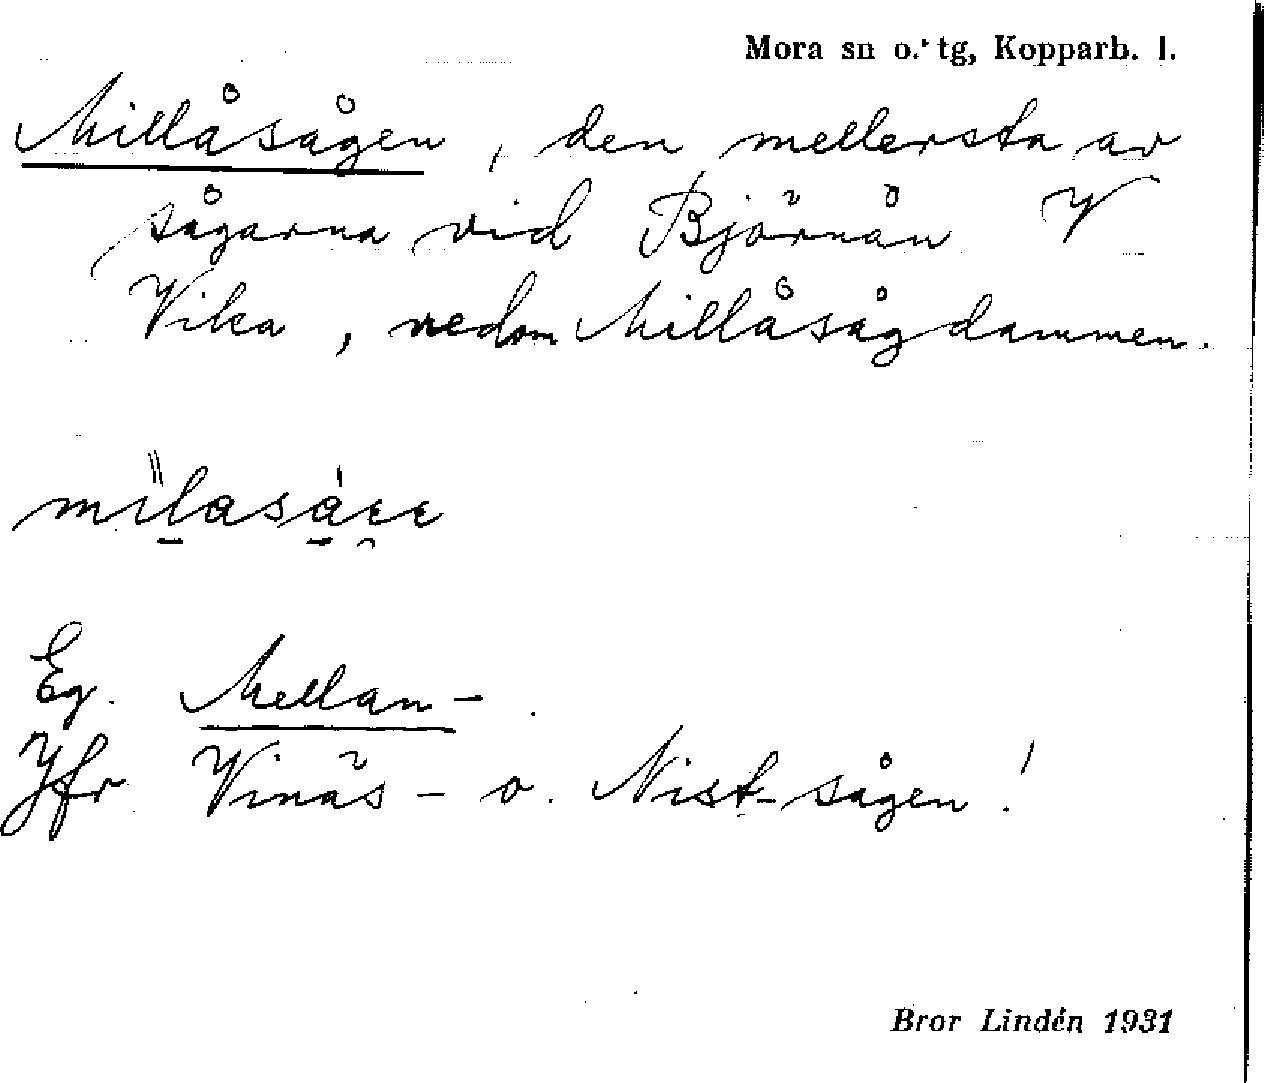 Mora sn o. tg, Kopparb. l.
Millåsågen, den mellersta av
sågarna vid Björnån V
Vika, nedom Millåsågdammen.
Eg. Mellan-
Jfr Vinäs- o. Nist-sågen!
Bror Lindén 1931